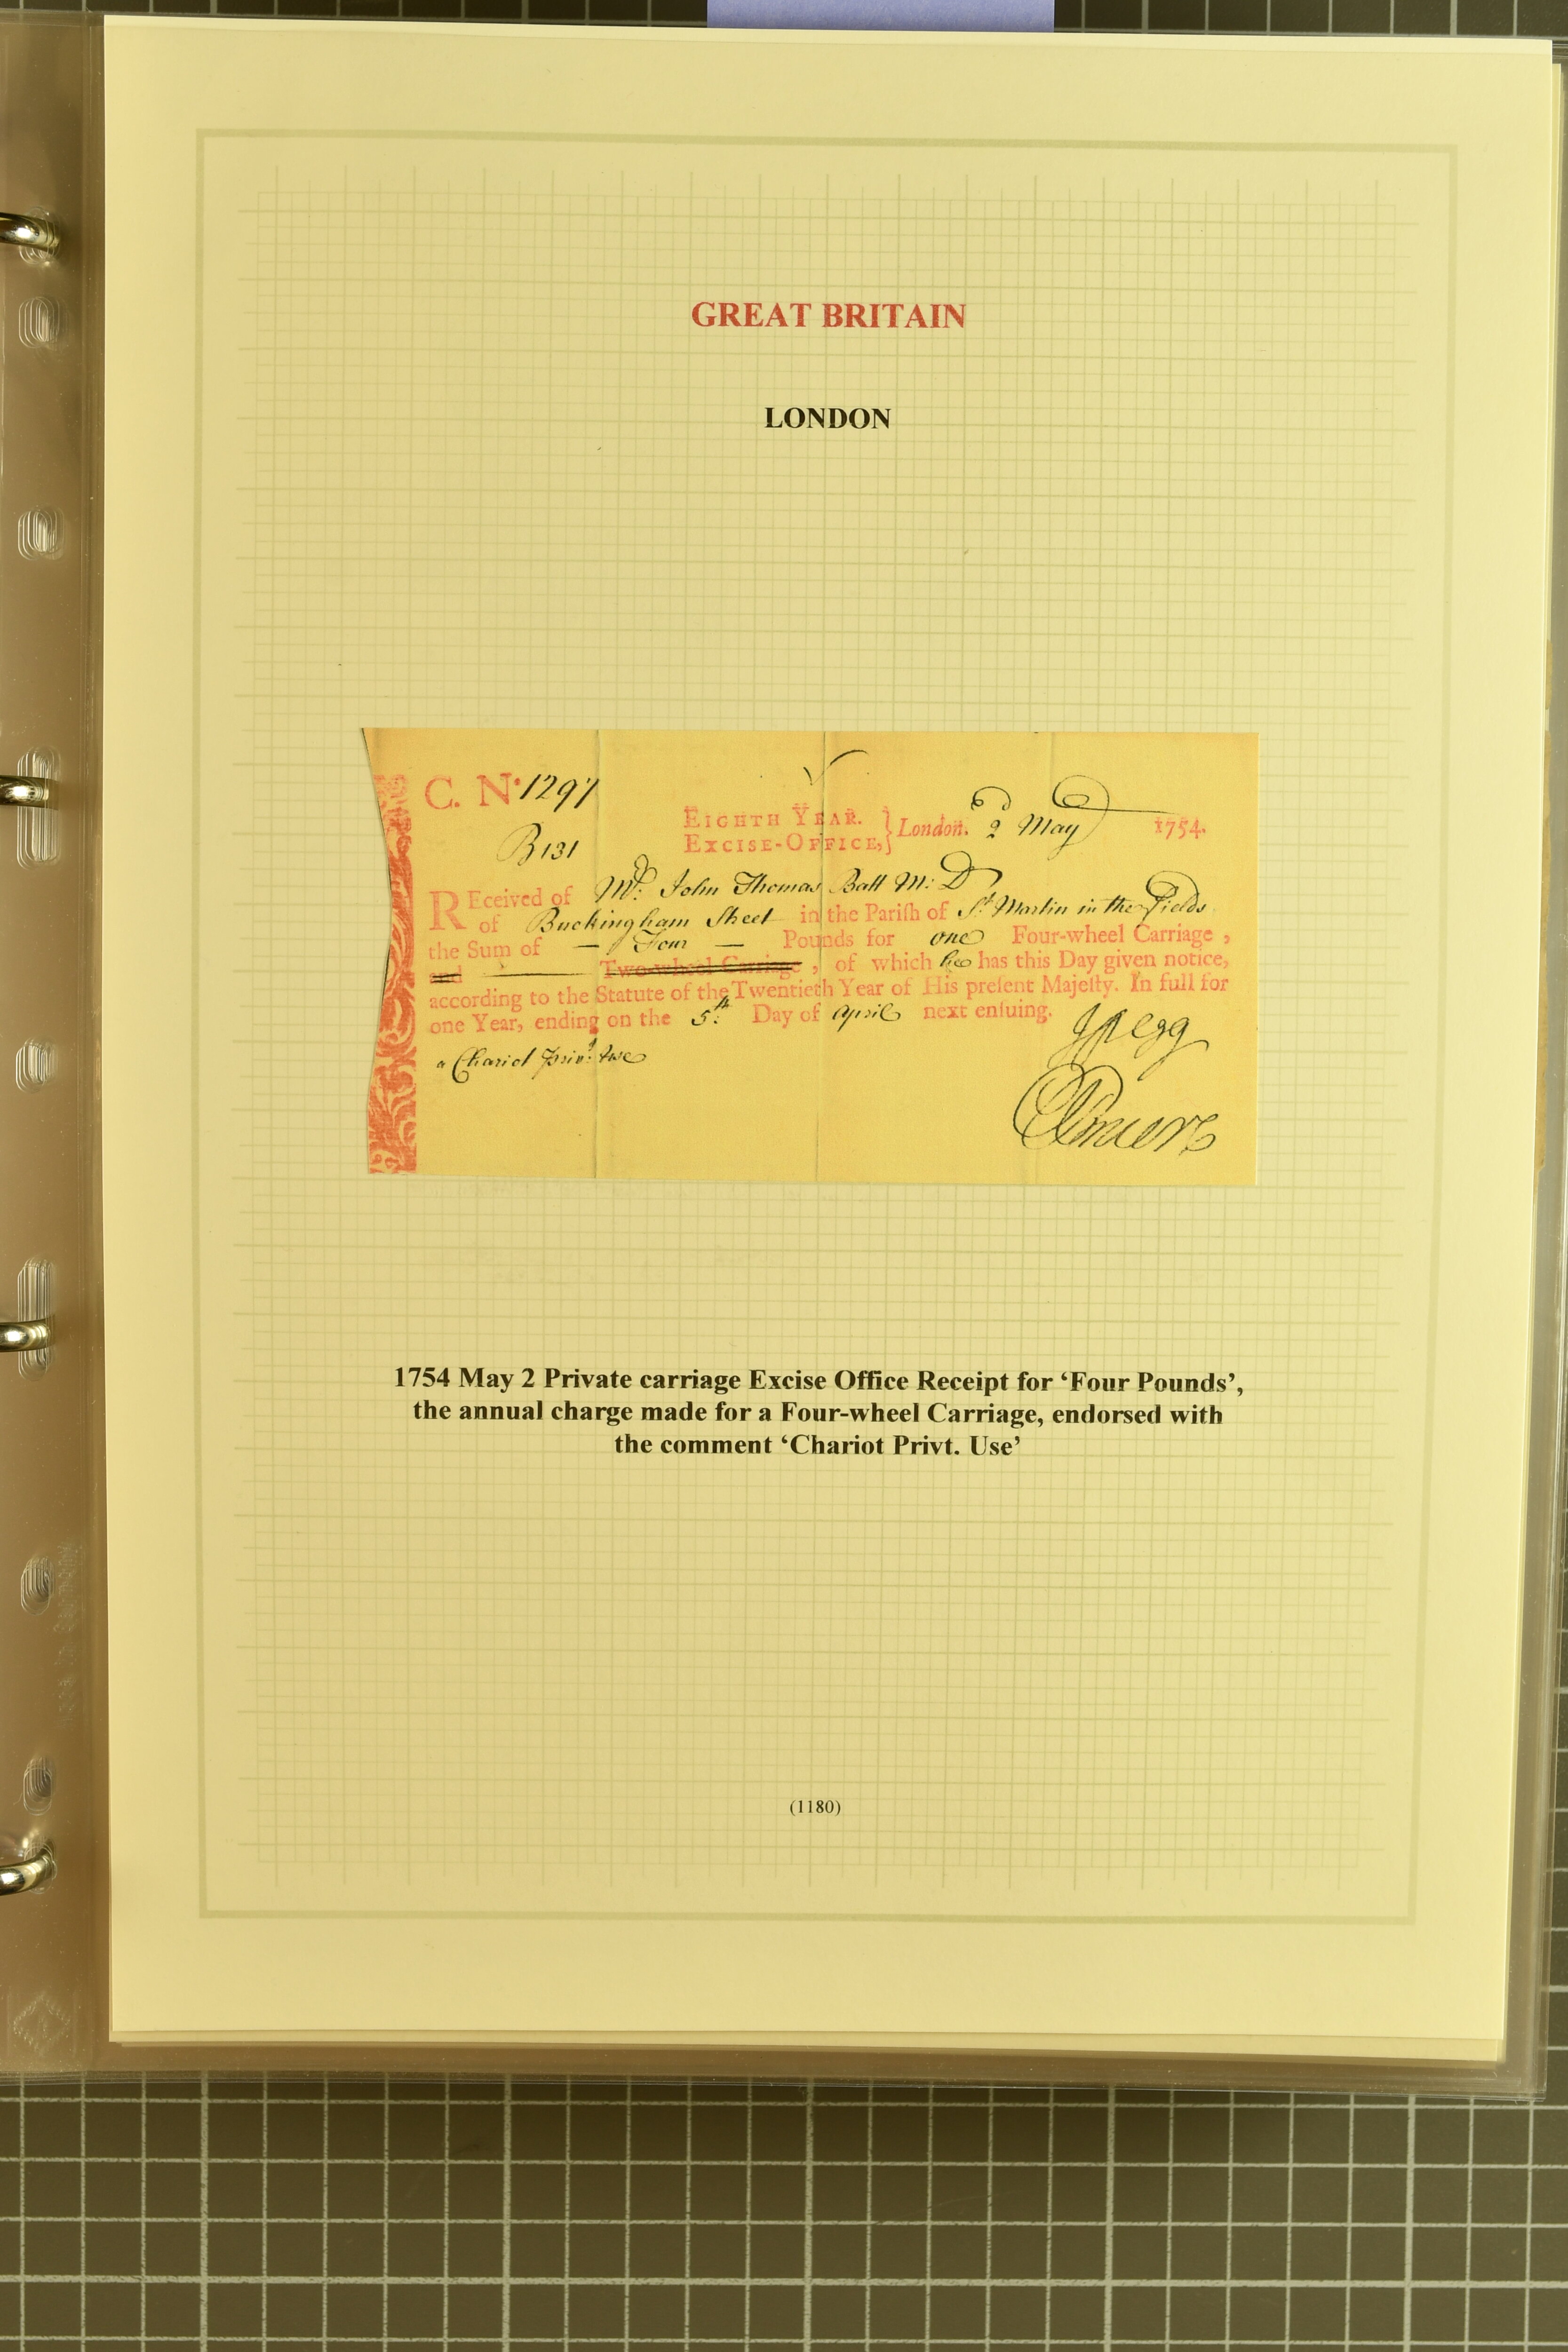 GREAT BRITAIN
LONDON
C. N.º 1297
B131
EIGHTH YEAR.
EXCISE-OFFICE, } London. 2 May 1754.
REceived of Mr. John Thomas Batt M: D
of Buckingham Street in the Pariſh of St. Martin in the Fields
the Sum of — Four — Pounds for one Four-wheel Carriage ,
and Two-wheel Carriage , of which he has this Day given notice,
according to the Statute of the Twentieth Year of His preſent Majeſty. In full for
one Year, ending on the 5th. Day of April next enſuing.
a Chariot privt. use
1754 May 2 Private carriage Excise Office Receipt for ‘Four Pounds’,
the annual charge made for a Four-wheel Carriage, endorsed with
the comment ‘Chariot Privt. Use’
(1180)